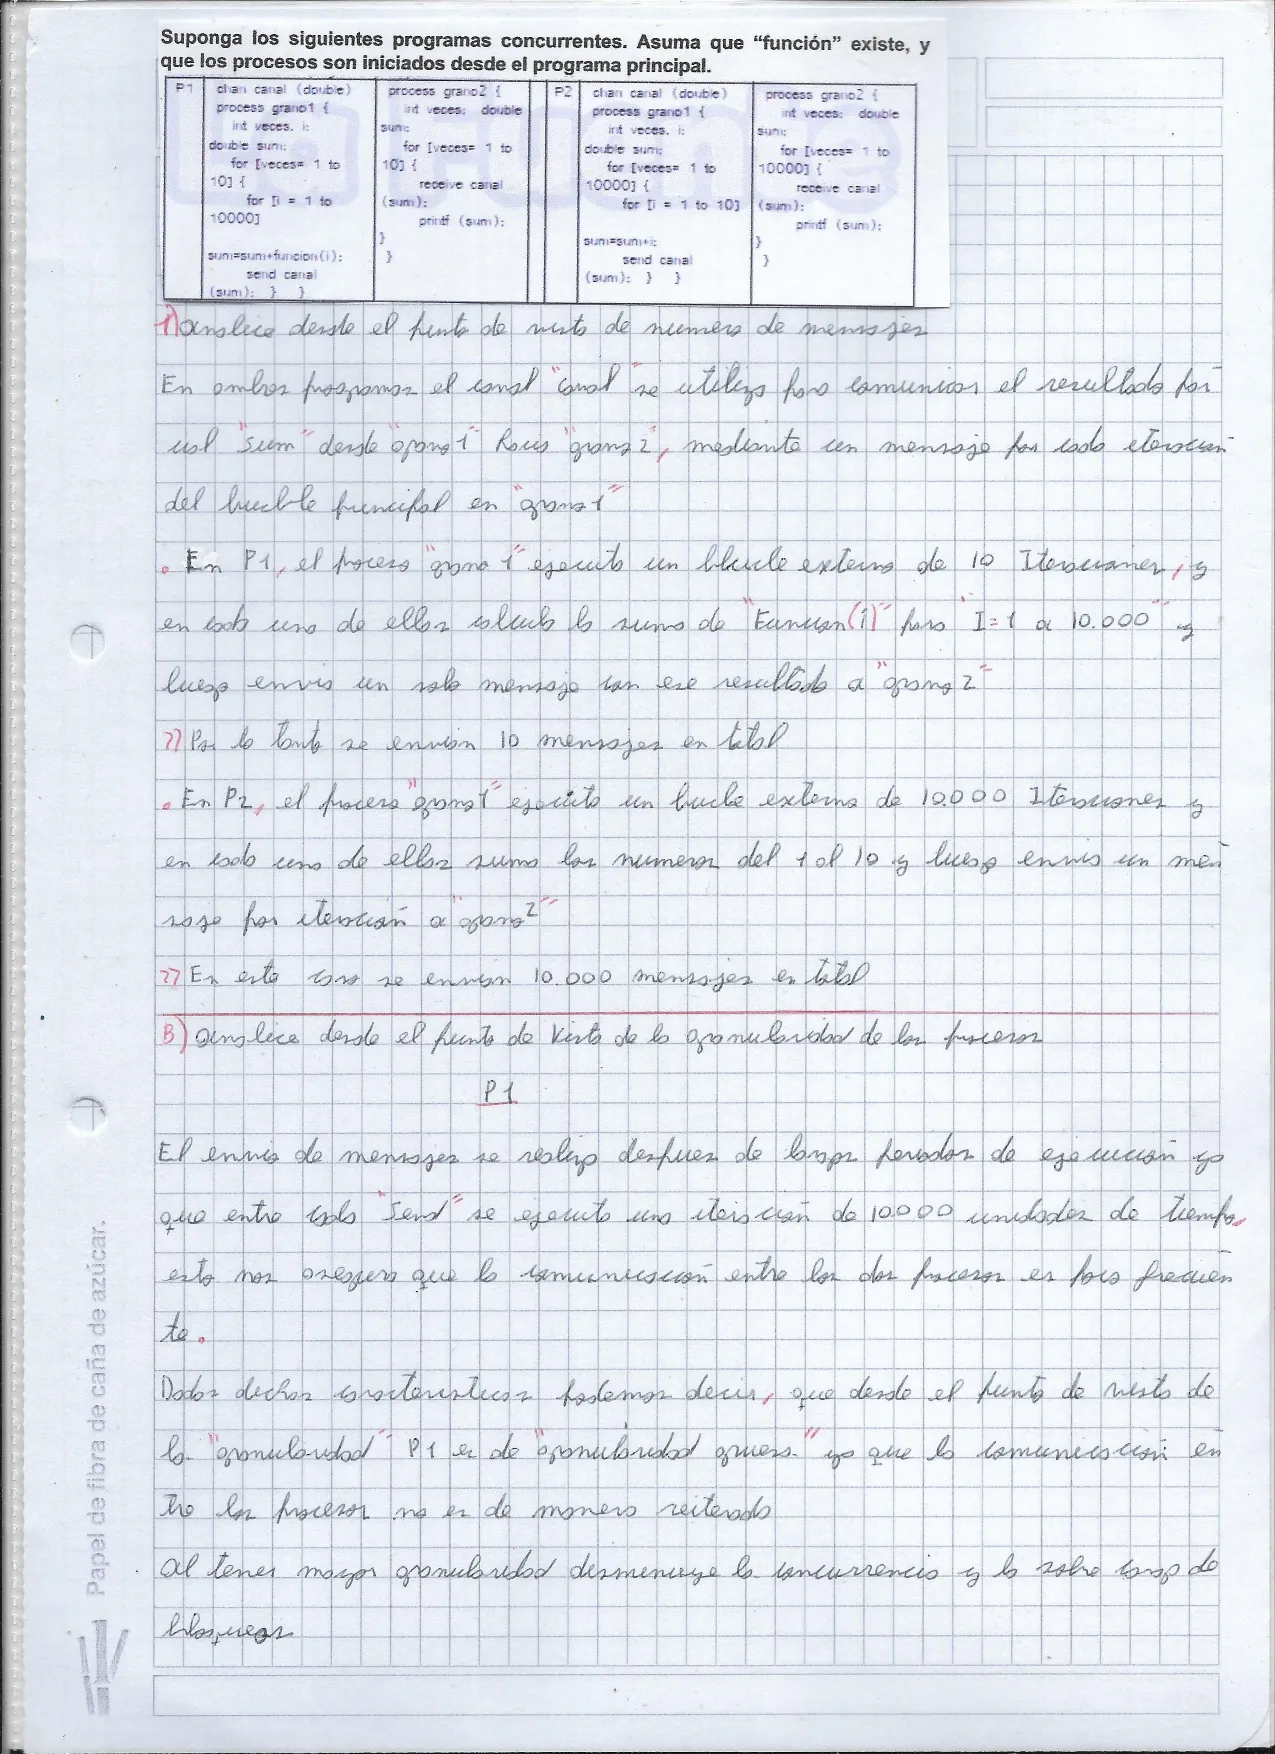 Suponga los siguientes programas concurrentes. Asuma que “función” existe, y
que los procesos son iniciados desde el programa principal.
P1
chan canal (double)
process grano1 {
int veces, i;
double sum;
for [veces= 1 to
10] {
for [i = 1 to
10000]
sum=sum+funcion(i);
send canal
(sum); } }
process grano2 {
int veces; double
sum;
for [veces= 1 to
10] {
receive canal
(sum);
printf (sum);
}
}
P2
chan canal (double)
process grano1 {
int veces, i;
double sum;
for [veces= 1 to
10000] {
for [i = 1 to 10]
sum=sum+i;
send canal
(sum); } }
process grano2 {
int veces; double
sum;
for [veces= 1 to
10000] {
receive canal
(sum);
printf (sum);
}
}
1) analice desde el punto de vista de numero de mensajes
En ambos programas el canal "canal" se utiliza para comunicar el resultado par
ual "sum" desde "grano1" hacia "grano2", mediante un mensaje por cada iteración
del bucble principal en "grano1"
• En P1, el proceso "grano 1" ejecuta un blucle externo de 10 Iteraciones, y
en cada una de ellas calcula la suma de "Funcion(i)" para "I=1 a 10.000" y
luego envia un solo mensaje con ese resultado a "grano2"
77 Por lo tanto se envian 10 mensajes en total
• En P2, el proceso "grano1" ejecuta un bucle externo de 10.000 Iteraciones y
en cada una de ellas suma los numeros del 1 al 10 y luego envia un men
saje por iteración a "grano2"
77 En este caso se envian 10.000 mensajes en total
B) analice desde el punto de vista de la granularidad de los procesos
P1
El envio de mensajes se realiza despues de largos periodos de ejecución ya
que entre cada "Send" se ejecuta una iteración de 10.000 unidades de tiempo,
esto nos asegura que la comunicación entre los dos procesos es poco frecuen
te.
Dadas dichas caracteristicas podemos decir, que desde el punto de vista de
la "granularidad" P1 es de "granularidad gruesa" ya que la comunicación en
tre los procesos no es de manera reiterada
al tener mayor granularidad desminuye la concurrencia y la sobre carga de
bloqueos
Papel de fibra de caña de azúcar.